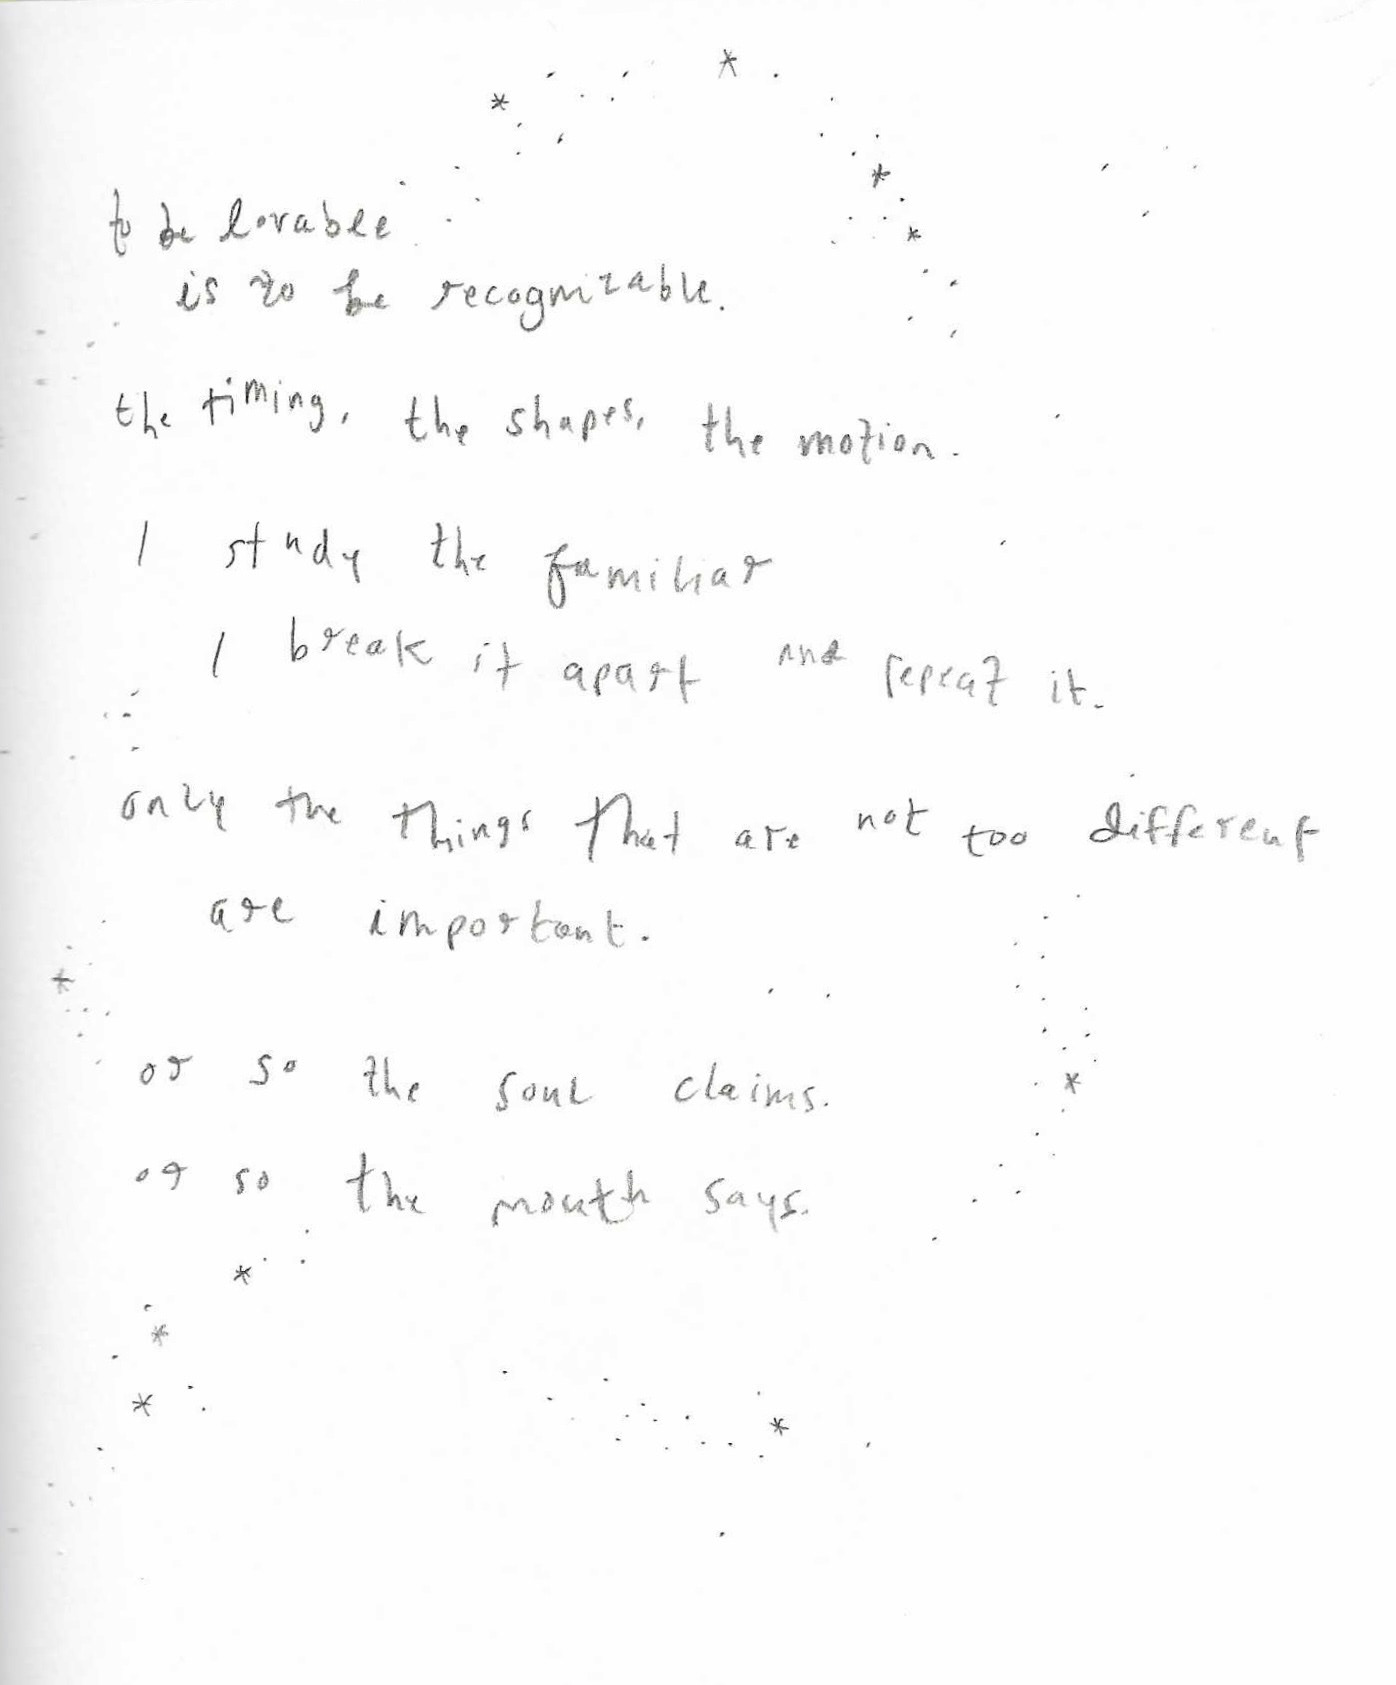 to be lovable
is to be recognizable.
the timing, the shapes, the motion.
I study the familiar
I break it apart and repeat it.
only the things that are not too different
are important.
or so the soul claims.
or so the mouth says.